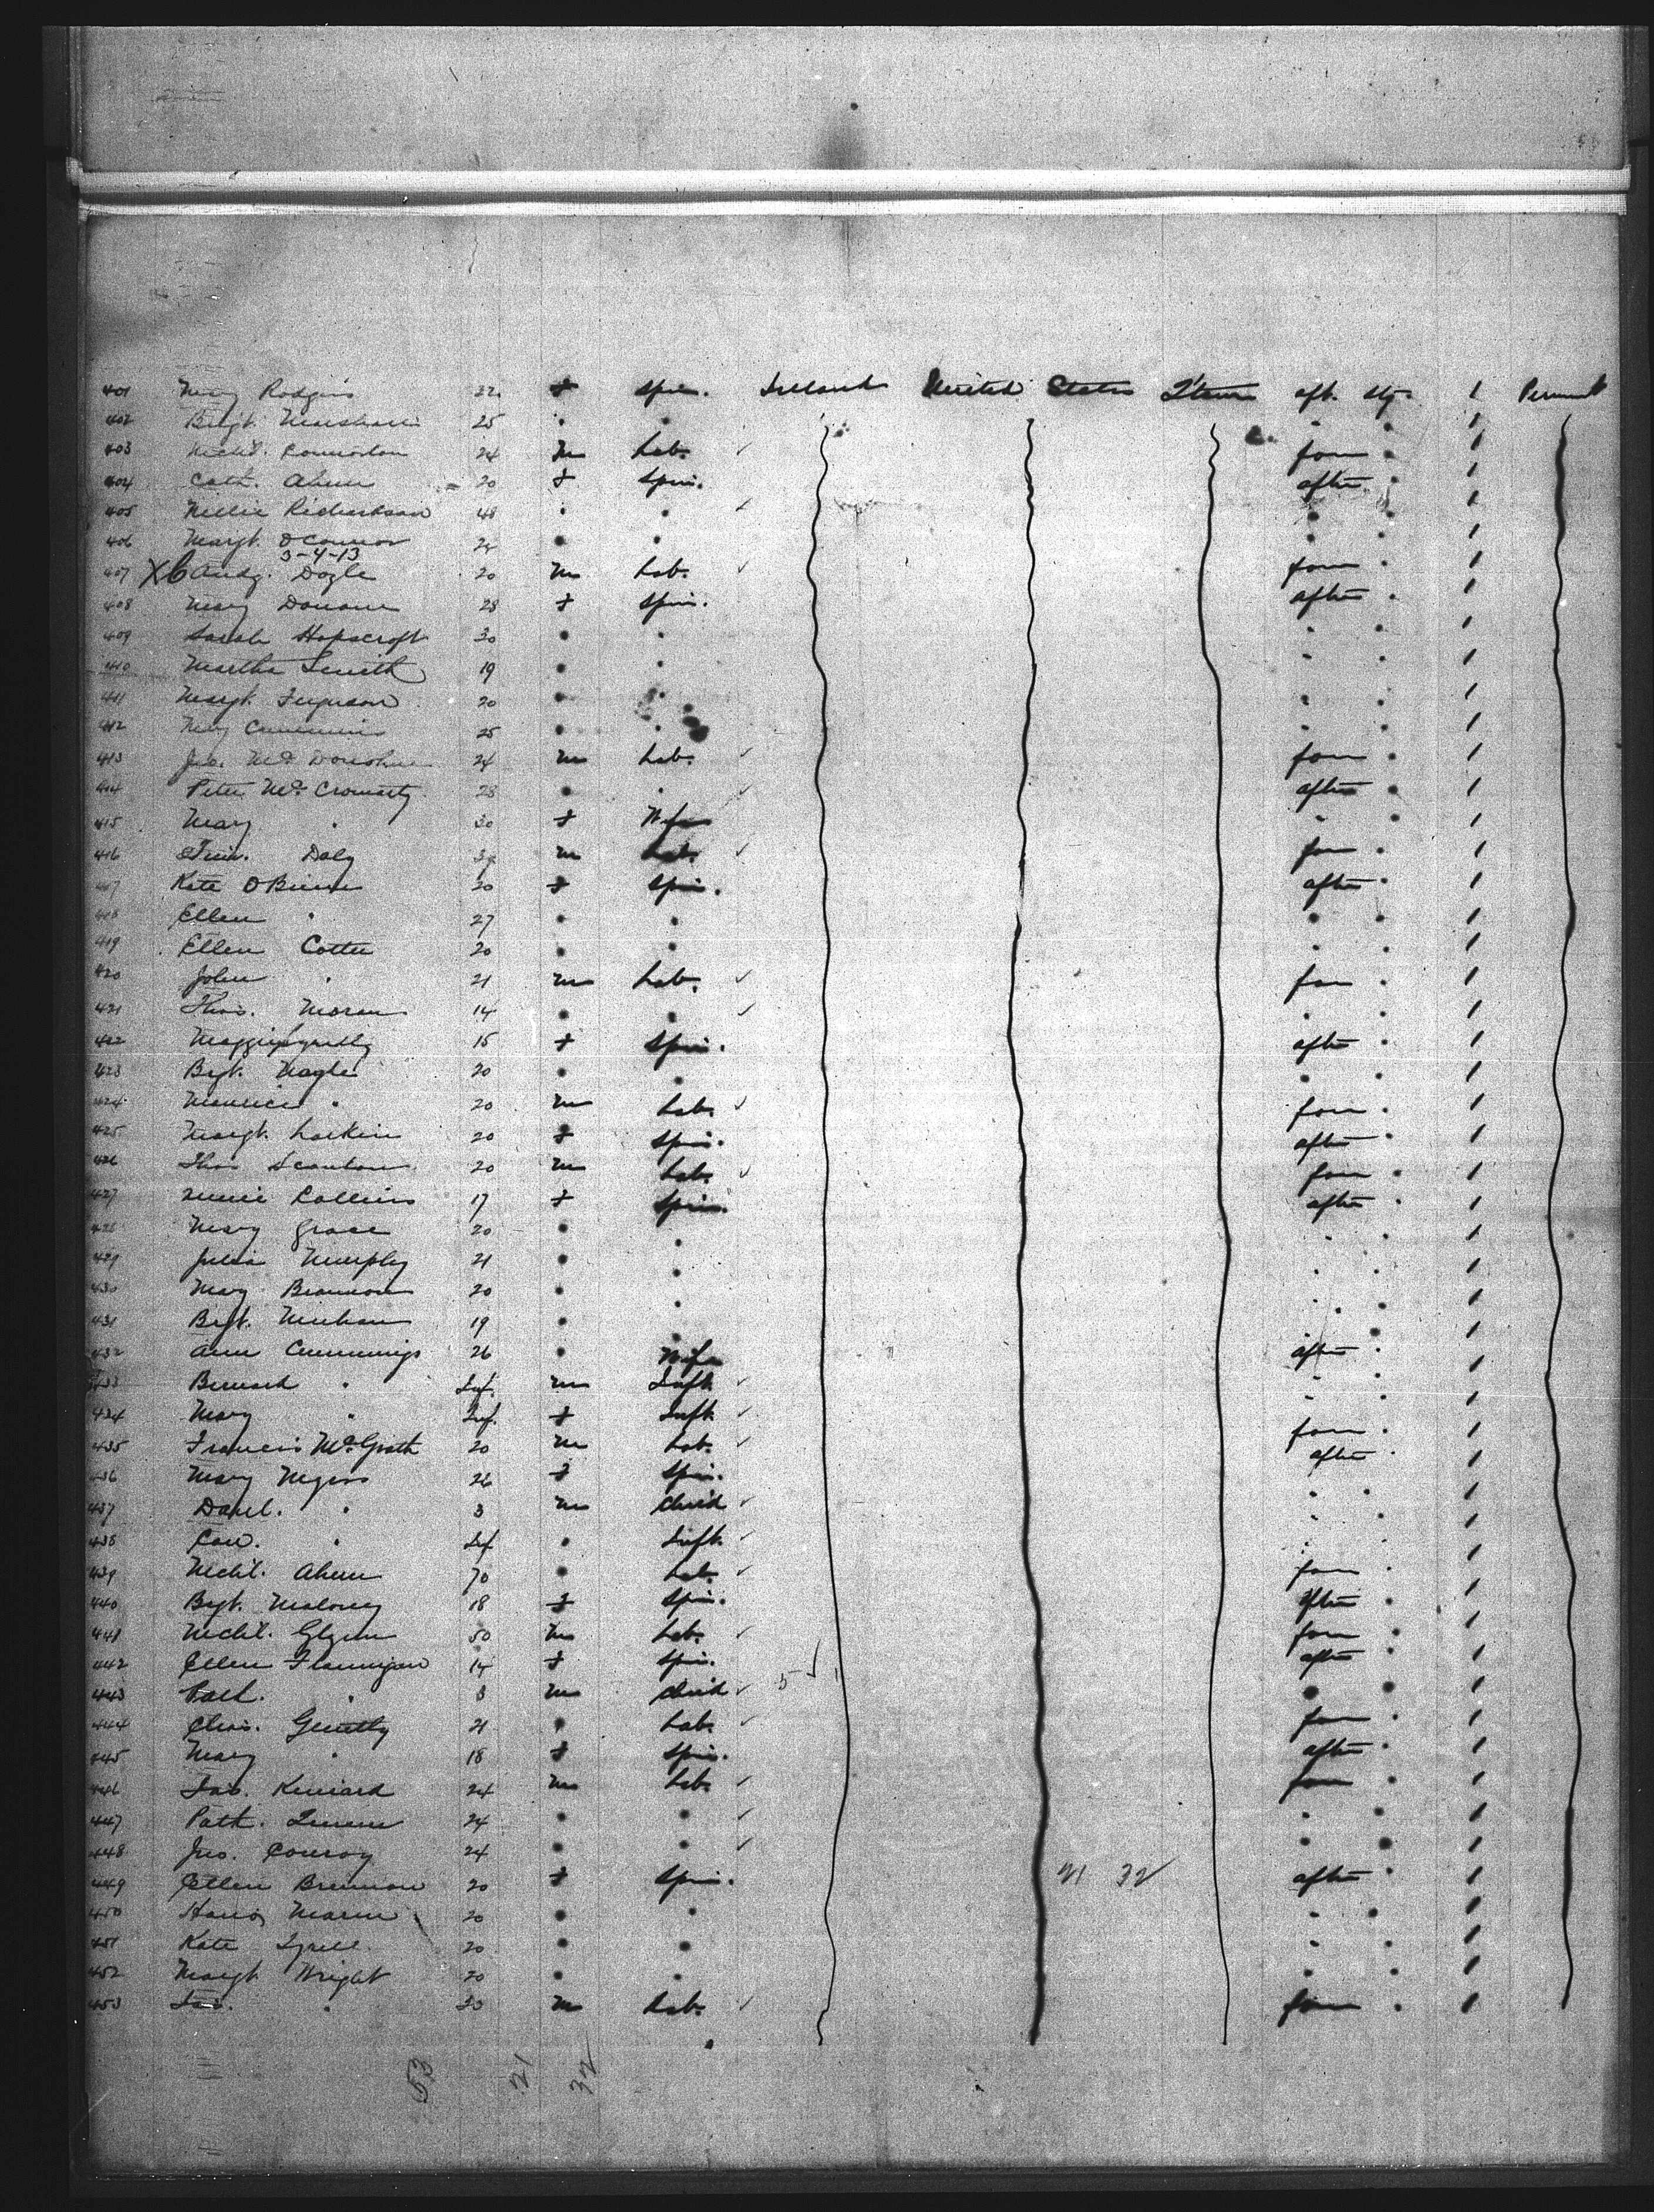 401 Mary Rodgers 22 f Spin. Ireland United States S'town aft. Stg. 1 Perment
402 Bridgt. 25 " " " " 1
403 Michl. 24 m Lab. ✓ for " 1
404 Cath. Ahern 20 f Spin. after " 1
405 Nellie Richardson 48 " " ✓ " " 1
406 Margt. O'Connor 24 " " " " 1
3-4-13
407 X6 Andy. Doyle 20 m Lab. ✓ for " 1
408 Mary Donovan 28 f Spin. after " 1
409 Sarah Hopscroft 30 " " " " 1
410 Martha Smith 19 " " " " 1
411 Margt. Ferguson 20 " " " " 1
412 Mary Cummins 25 " " " " 1
413 Jno. McDonohue 24 m Lab. ✓ for " 1
414 Peter McCromarty 28 " " ✓ after " 1
415 Mary " 30 f Wife " " 1
416 Daly m Lab. ✓ for " 1
417 Kate O'Brien 20 f Spin. after " 1
418 Ellen " 27 " " " " 1
419 Ellen Cotter 20 " " " " 1
420 John " 21 m Lab. ✓ for " 1
421 Thos. Moran 14 " " ✓ " " 1
422 Maggie 15 f Spin. after " 1
423 Bgt. Nagle 20 " " " " 1
424 Maurice " 20 m Lab. ✓ for " 1
425 Margt. Larkin 20 f Spin. after " 1
426 Thos Scanlon 20 m Lab. ✓ for " 1
427 Collins 17 f Spin. after " 1
428 Mary Grace 20 " " " " 1
429 Julia Murphy 21 " " " " 1
430 Mary Brannon 20 " " " " 1
431 Bgt. Meehan 19 " " " " 1
432 Ann Cummings 26 " Wife after " 1
433 Bernard " Inf. m Inft ✓ " " 1
434 Mary " Inf. f Inft ✓ " " 1
435 Francis McGrath 20 m Lab. ✓ for " 1
436 Mary Myers 26 f Spin. after " 1
437 Danl. " 3 m Child ✓ " " 1
438 Con. " Inf " Inft ✓ " " 1
439 Michl. Ahern 70 " Lab. ✓ for " 1
440 Bgt. Maloney 18 f Spin. after " 1
441 Michl. Glynn 50 m Lab. ✓ for " 1
442 Ellen Flannigan 14 f Spin. after " 1
443 Patk. " 8 m Child ✓ 5 ✓ " " 1
444 Chas. Geraty 21 " Lab. ✓ for " 1
445 Mary " 18 f Spin. after " 1
446 Jas. Kinnard 24 m Lab. ✓ for " 1
447 Patk. 24 " " ✓ " " 1
448 Jno. Conroy 24 " " ✓ " " 1
449 Ellen Brennan 20 f Spin. 21 32 after " 1
450 20 " " " " 1
451 Kate 20 " " " " 1
452 Margt Wright 20 " " " " 1
453 Jas. " 20 m Lab. ✓ for " 1
53 21 32